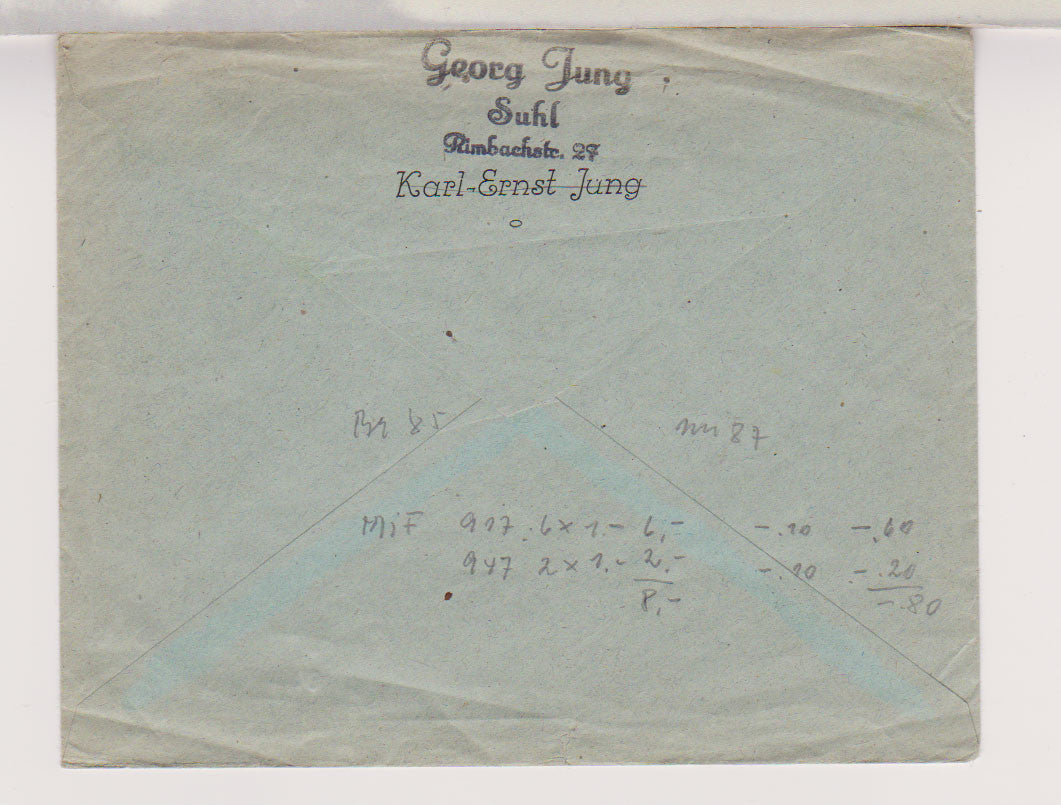 Georg Jung
Suhl
Rimbachstr. 27
Karl-Ernst Jung
85
87
MiF 917 . 6 x 1.- 6,- -.10 -.60
947 2 x 1.- 2.- -.10 -.20
8,- -.80